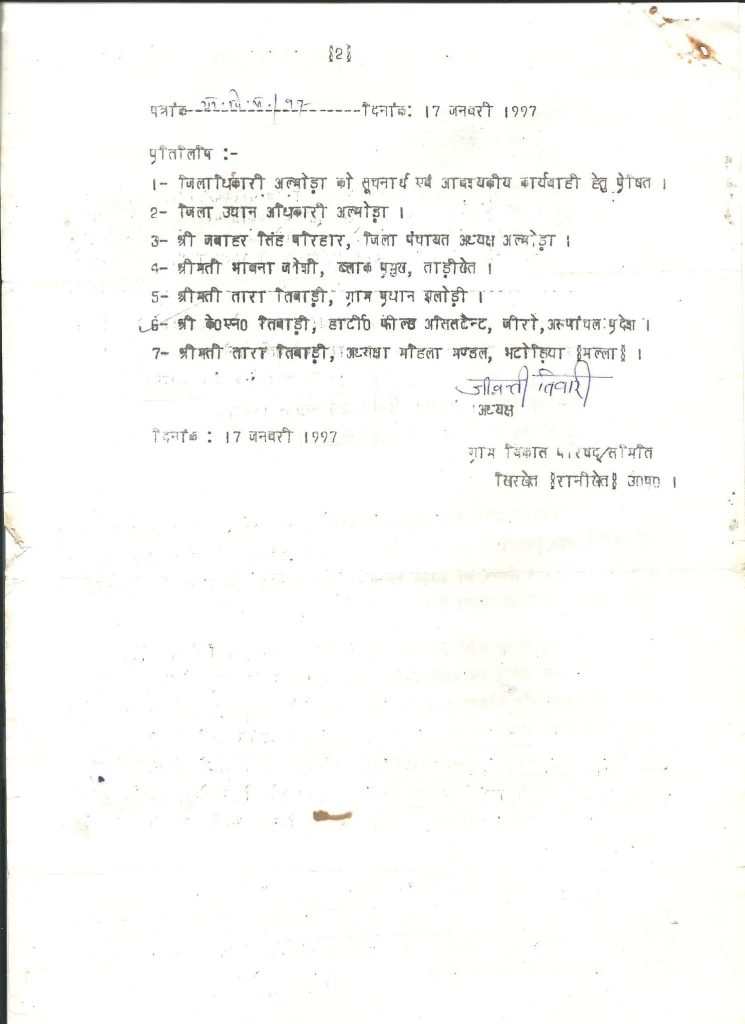 §2§
पत्रांक-ग्रा.वि.प./97-दिनांक: 17 जनवरी 1997
प्रतिलिपि :-
1- जिलाधिकारी अल्मोड़ा को सूचनार्थ एवं आवश्यकीय कार्यवाही हेतु प्रेषित ।
2- जिला उद्यान अधिकारी अल्मोड़ा ।
3- श्री जवाहर सिंह परिहार, जिला पंचायत अध्यक्ष अल्मोड़ा ।
4- श्रीमती भावना जोशी, ब्लाक प्रमुख, ताड़ीखेत ।
5- श्रीमती तारा तिवाड़ी, ग्राम प्रधान झलोड़ी ।
6- श्री के0एन0 तिवाड़ी, डाटी0 फील्ड असिसटेन्ट, जीरो, अरूणांचल प्रदेश ।
7- श्रीमती तारा तिवाड़ी, अध्यक्षा महिला मण्डल, भटोड़िया §मल्ला§ ।
जीवन्ती तिवारी
अध्यक्ष
दिनांक : 17 जनवरी 1997
ग्राम विकास परिषद/समिति
खिरखेत §रानीखेत§ उ0प्र0 ।